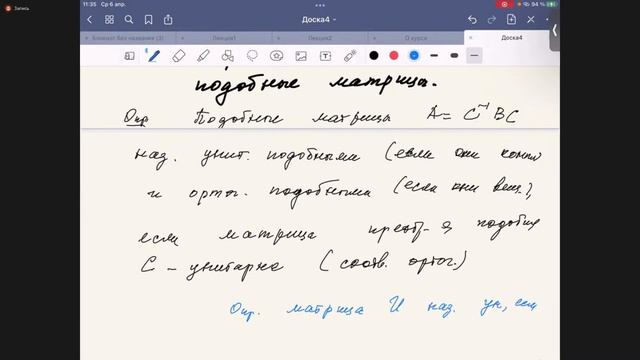 Запись
11:35 Ср 6 апр.
94 %
Доска4
Блокнот без названия (3)
Лекция1
Лекция2
О курсе
Доска4
подобные матрица.
Опр Подобные матрицы A = C⁻¹BC
наз. унит. подобными (если они компл
и орто. подобными (если они вещ.),
если матрица преобр-я подобия
C – унитарна (соотв. ортог.)
Опр. матрица U наз. ун, если